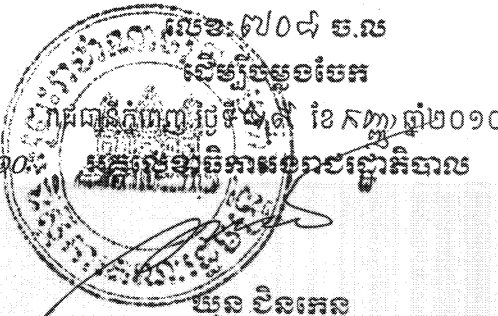 លេខ: ៧០៨ ច.ល
ដើម្បីចម្លងចែក
រាជធានីភ្នំពេញ ថ្ងៃទី ខែ កញ្ញា ឆ្នាំ២០១០
អគ្គលេខាធិការរាជរដ្ឋាភិបាល
ឃុន ជិនកេន